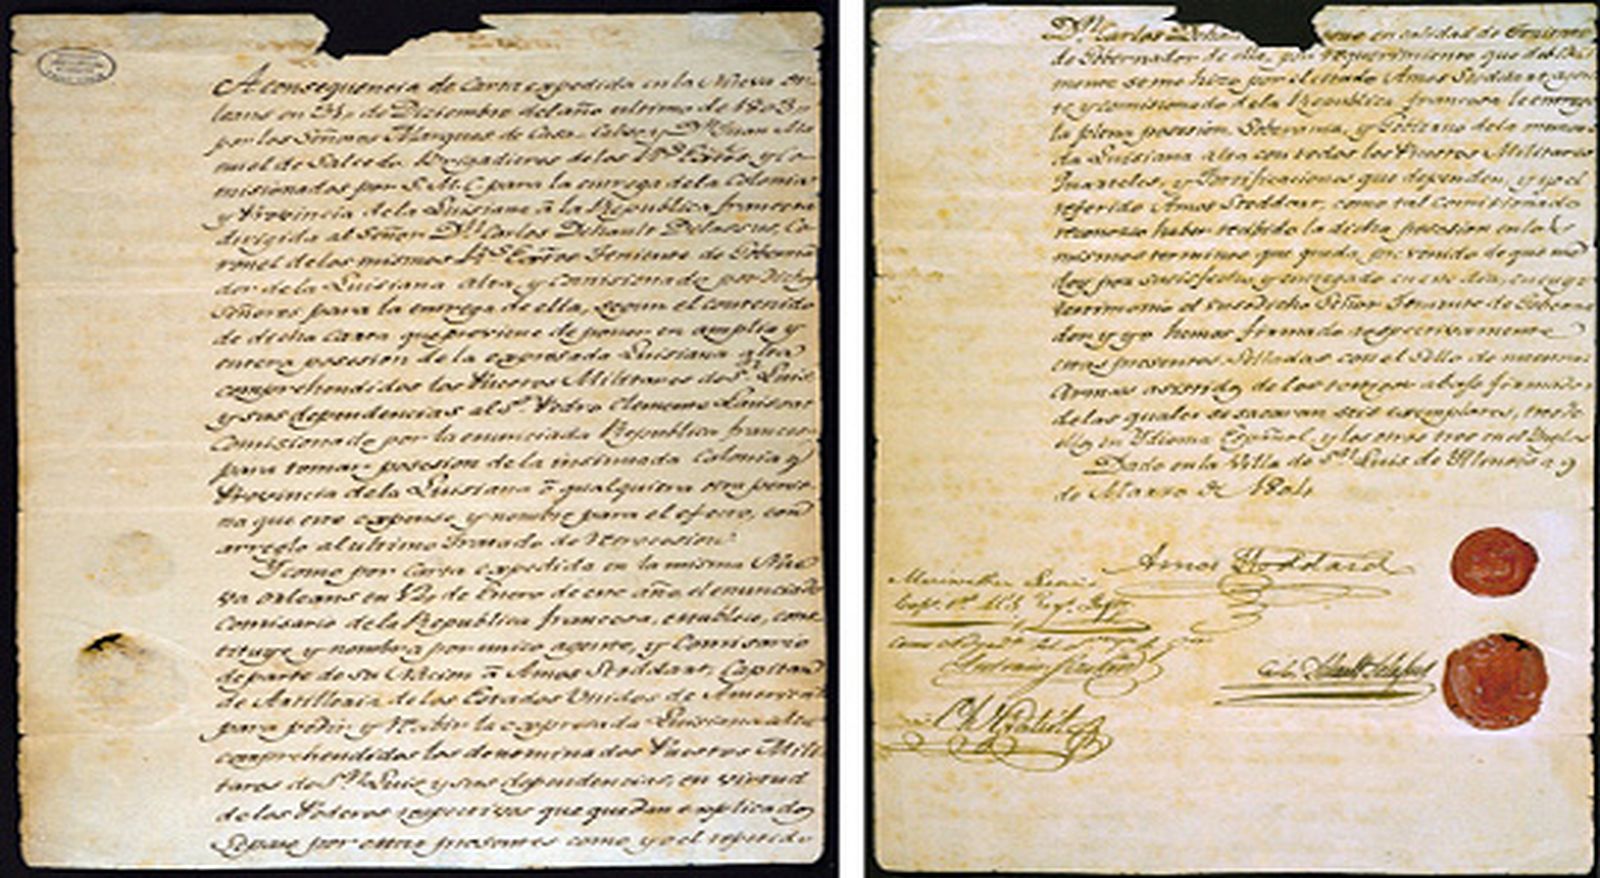 A consequencia de Carta expedida en la Nueva Or-
leans en 31 de Diciembre del año ultimo de 1803
por los Señores Marques de Casa Calvo y Dn. Juan Ma
nuel de Salcedo Brigadieres de los Rs. Extos y Co-
misionados por S.M.C. para la entrega de la Colonia
y Provincia de la Luisiana à la Republica francesa
dirigida al Señor Dn. Carlos Dehault Delassus, Co-
ronel de los mismos Rs. Extos Teniente de Goberna
dor de la Luisiana alta y Comisionado por dichos
Señores para la entrega de ella, segun el contenido
de dicha Carta que previene de poner en amplia y
entera posesion de la expresada Luisiana alta
comprehendidos los Puestos Militares de Sn. Luis
y sus dependencias al Sr. Pedro Clemente Laussat
Comisionado por la enunciada Republica francesa
para tomar posesion de la insinuada Colonia y
Provincia de la Luisiana ō qualquiera otra perso-
na que este expense y nombre para el efecto, con
arreglo al ultimo Tratado de Retrocesion.
Y como por Carta expedida en la misma Nue
va Orleans en 12 de Enero de este año el enunciado
Comisario de la Republica francesa, establece, cons
tituye y nombra por unico agente, y Comisario
de parte de su Nacion â Amos Stoddart, Capitan
de Artilleria de los Estados Unidos de America
para pedir y Recibir la expresada Luisiana alta
comprehendidos los denominados Puestos Mili
tares de Sn. Luis y sus dependencias, en virtud
de los Poderes respectivos que quedan explicados
Sepase por estas presentes como yo el referido
Dn. Carlos en calidad de Teniente
de Gobernador de ella, por requerimiento que
mente se me hizo por el citado Amos Stoddart agen
te y comisionado de la Republica francesa le entrego
la plena posesion, Soberania, y Gobierno de la
da Luisiana alta con todos los Puestos Militares
Quarteles, y Fortificaciones que dependen, y yo el
referido Amos Stoddart, como tal Comisionado
reconozco haber recibido la dicha posesion en los
mismos terminos que queda prevenido de que me
doy por satisfecho y entregado en este dia, en cuyo
testimonio el susodicho Señor Teniente de Goberna
dor y yo hemos firmado respectivamente
estas presentes Selladas con el Sello de nuestras
Armas asistidos de los testigos abajo firmados
de las quales se sacaron seis exemplares, tres
en Ydioma Español, y los otros tres en el Yngles
Dado en la Villa de Sn. Luis de Ylinoes a 9
de Marzo de 1804
Amos Stoddard
Meriwether Lewis
Antoine Soulard
Carlos Dehault Delassus
Ch. Gratiot